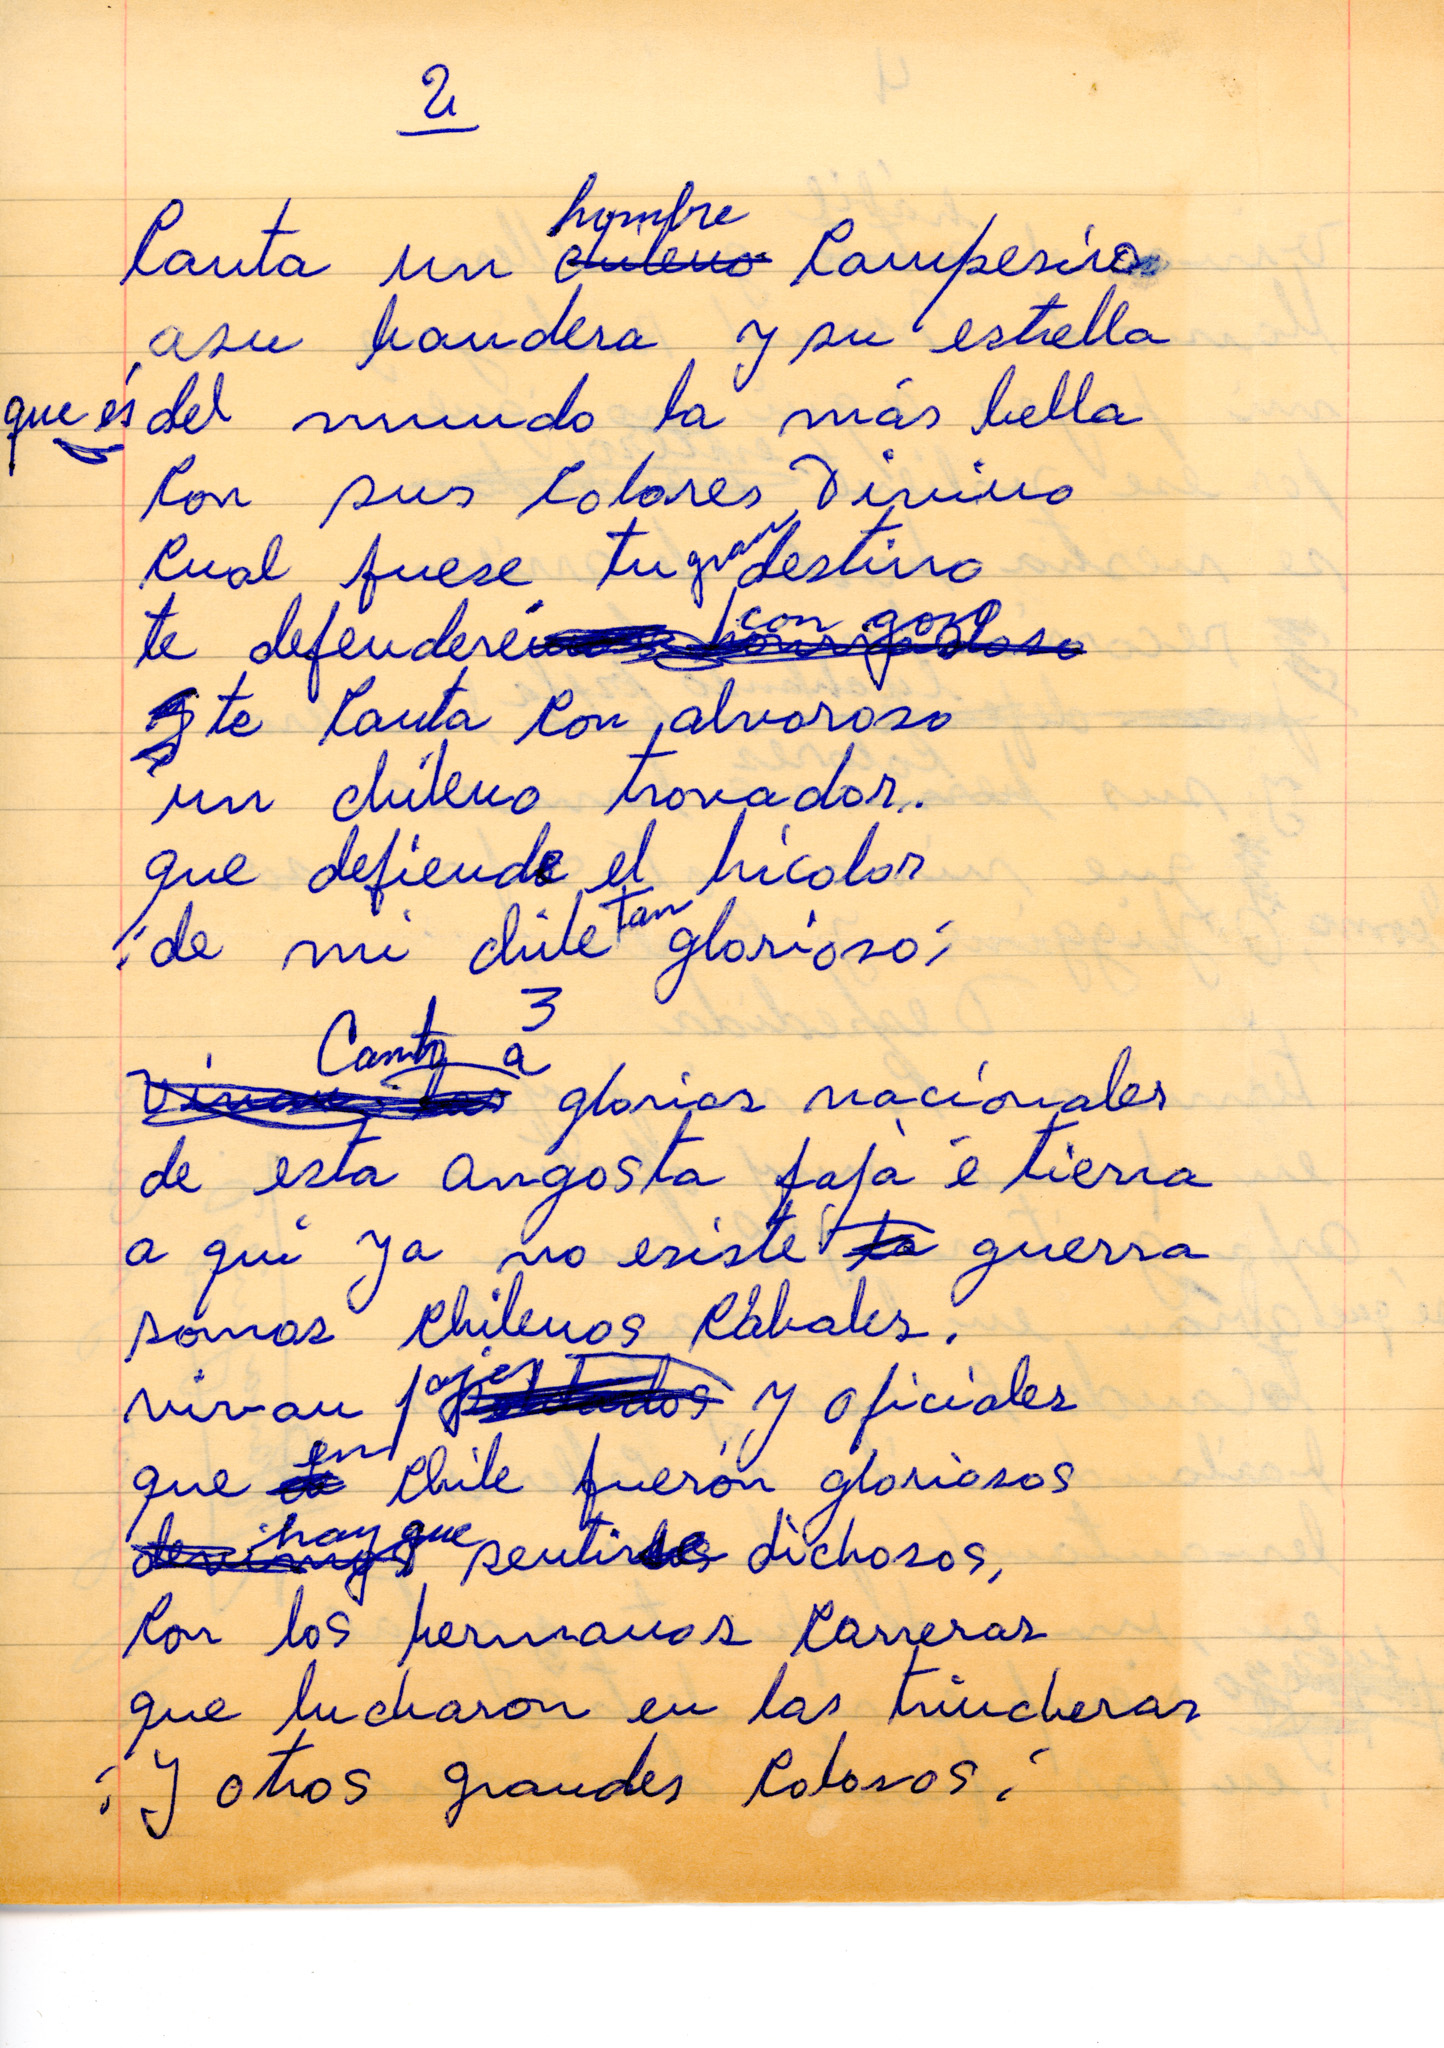 2
Canta un hombre campesino
a su bandera y su estrella
que és del mundo la más bella
con sus colores Divino
cual fuese tu gran destino
te defenderé con goso
y te canta con alvoroso
un chileno trovador..
que defiende el bicolor
¡de mi chile tan glorioso¡
3
Canto a glorias nacionales
de esta angosta faja é tierra
a quí ya no esiste guerra
somos chilenos cábales.
vivan pajes y oficiales
que en chile fuerón gloriosos
hay que sentirse dichosos,
con los hermanos Carreras
que lucharon en las trincheras
¡y otros grandes colosos¡